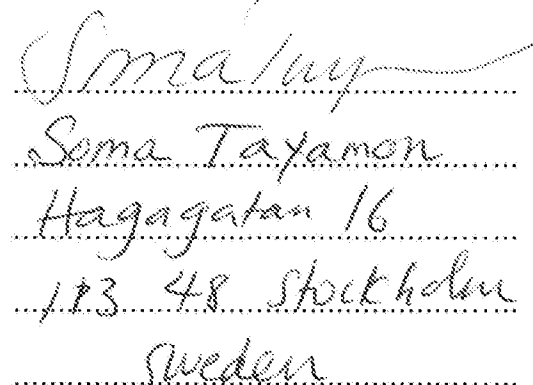 Soma Tayamon
Hagagatan 16
113 48 Stockholm
Sweden